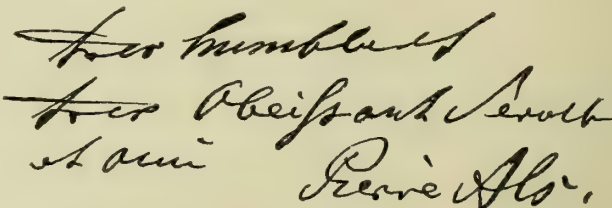 tres humble et
tres Obeissant Servit
et ami
Pierre Als.